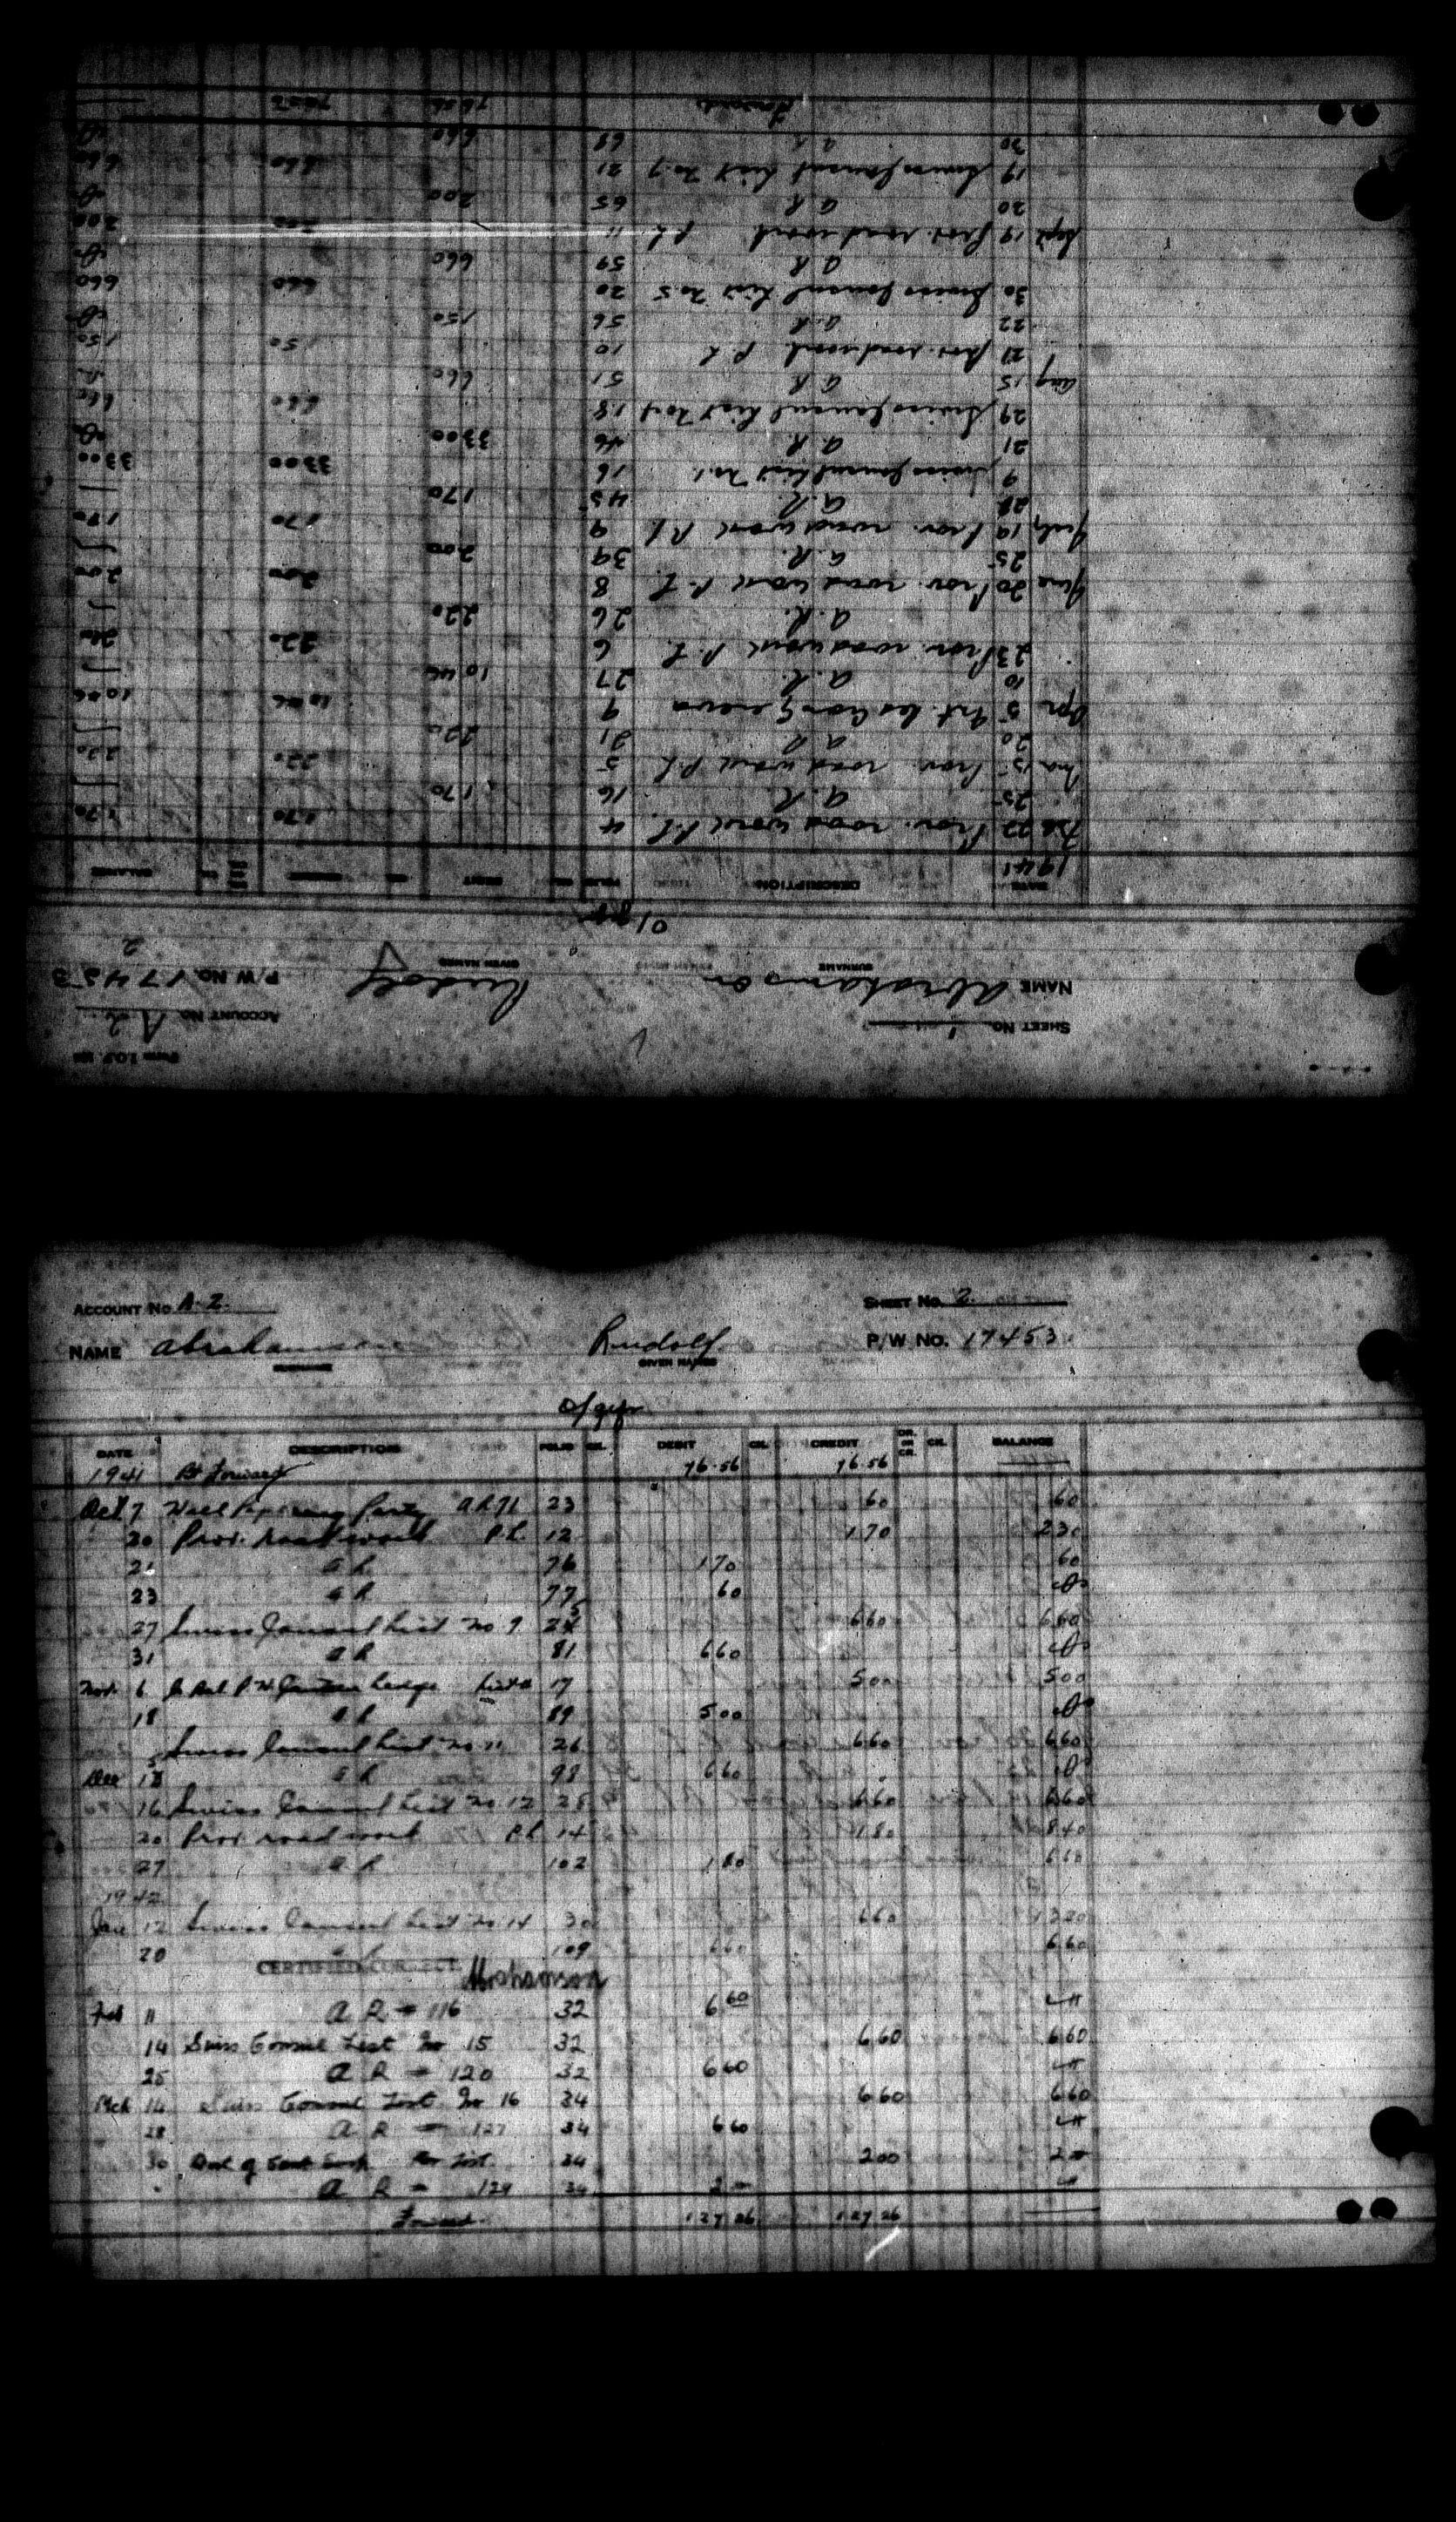 Form I.O.P. 101
SHEET No. 1 ACCOUNT No. A 2
NAME Abrahamson Rudolf P/W No. 17453
SURNAME GIVEN NAMES
2
DATE DESCRIPTION FOLIO DEBIT CREDIT BALANCE
1941
Feb 22 Prov. road work P.L. 4 1 70 1 70
25 A.R. 16 1 70
Mar 15 Prov. road work P.L. 5 2 20 2 20
20 A R 21 2 20
Apr 5 Int. les Croix Geneva 9 10 06 10 06
10 A.R. 27 10 06
23 Prov. road work P.L. 6 2 20 2 20
A.R. 26 2 20
June 20 Prov. road work P.L. 8 2 00 2 00
25 A.R. 39 2 00
July 19 Prov. road work P.L. 9 1 70 1 70
28 A.R. 45 1 70
9 Swiss Consul List No. 1 16 33 00 33 00
21 A.R. 46 33 00
29 Swiss Consul List No 4 18 6 60 6 60
Aug 15 A R 51 6 60
21 Prov. road work P.L. 10 1 50 1 50
22 A.R. 56 1 50
30 Swiss Consul List No. 5 20 6 60 6 60
A R 59 6 60
Sept 19 Prov. road work P L 11 2 00 2 00
20 A R 65 2 00
19 Swiss Consul List No. 7 21 6 60 6 60
30 A R 69 6 60
Forward 76 56 76 56
ACCOUNT No. A-2. SHEET No. 2.
NAME Abrahamson Rudolf P/W No. 17453
SURNAME GIVEN NAMES
DATE DESCRIPTION FOLIO CK. DEBIT CK. CREDIT DR. OR CR. CK. BALANCE
1941 Bt Forward 76.56 76.56
Oct 7 Wall Papering Party A.R. 71 23 60 60
20 Prov. road work P.L. 12 1 70 2 30
21 A R 76 1 70 60
23 A R 77 60
27 Swiss Consul List No 9 25 6 60 6 60
31 A R 81 6 60
Nov. 6 17 5 00 5 00
18 A R 89 5 00
Swiss Consul List No 11 26 6 60 6 60
Dec 15 A R 98 6 60
16 Swiss Consul List No. 12 28 6 60 6 60
20 Prov. road work P.L. 14 1 80 8 40
27 A R 102 1 80 6 60
1942
Jan 12 Swiss Consul List No 14 30 6 60 13 20
20 A R 109 6 60 6 60
CERTIFIED CORRECT Abrahamson
Feb 11 A R - 116 32 6 60
14 Swiss Consul List No 15 32 6 60 6 60
25 A R - 120 32 6 60
Mch 14 Swiss Consul List No 16 34 6 60 6 60
28 A R - 127 34 6 60
30 List. 34 2 00 2 —
A R - 129 34 2 —
Forward 127 26 127 26